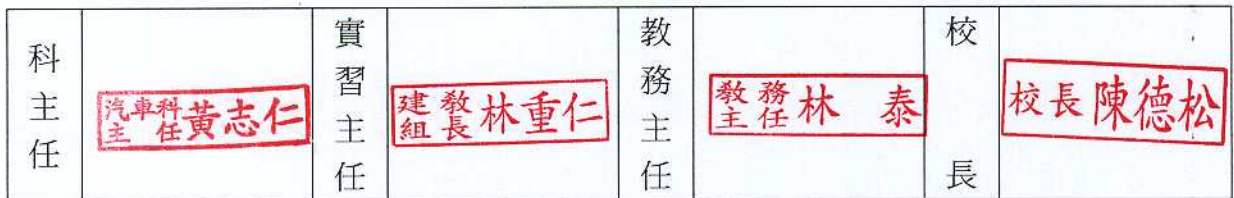 科主任
汽車科主任 黃志仁
實習主任
建教組長 林重仁
教務主任
教務主任 林泰
校長
校長 陳德松